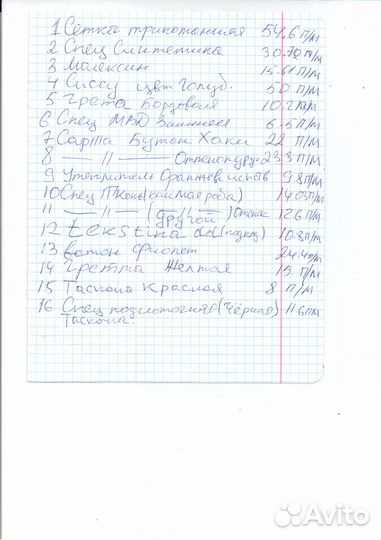 1 Сетка трикотонная 54.6 п/м
2 Спец Синтетика 30.70 п/м
3 Малексин 15.61 п/м
4 Сиссу цвт Голуб. 50 п/м
5 Грета Бордовая 10.2 п/м
6 Спец МАТ Защитное 6.5 п/м
7 Саржа Бутон Хаки 22 п/м
8 —— 11 —— Оттенок др. 23.3 п/м
9 Утеплитель Оранжев 9.8 п/м
10 Спец ПКоне (роба) 14.05 п/м
11 —— 11 —— (другой) Оттенок 12.6 п/м
12 tekstina dd (подкл) 10.8 п/м
13 ватон фиолет 24.4 п/м
14 Гретта Желтая 15 п/м
15 Таслона Красная 8 п/м
16 Спец (Чёрная) 11.6 п/м
Таслона.
Avito